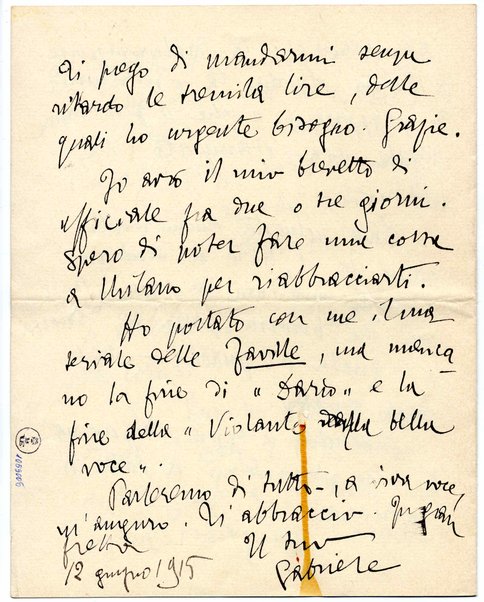 Ti prego di mandarmi senza
ritardo le tremila lire, delle
quali ho urgente bisogno. Grazie.
Io avrò il mio brevetto di
ufficiale fra due o tre giorni.
Spero di poter fare una corsa
a Milano per riabbracciarti.
Ho portato con me il ma
teriale delle Faville, ma manca
no la fine di "Dario" e la
fine della "Violante dalla bella
voce".
Parleremo di tutto, a viva voce,
m'auguro. Ti abbraccio. In gran
fretta
Il tuo
Gabriele
12 giugno 1915